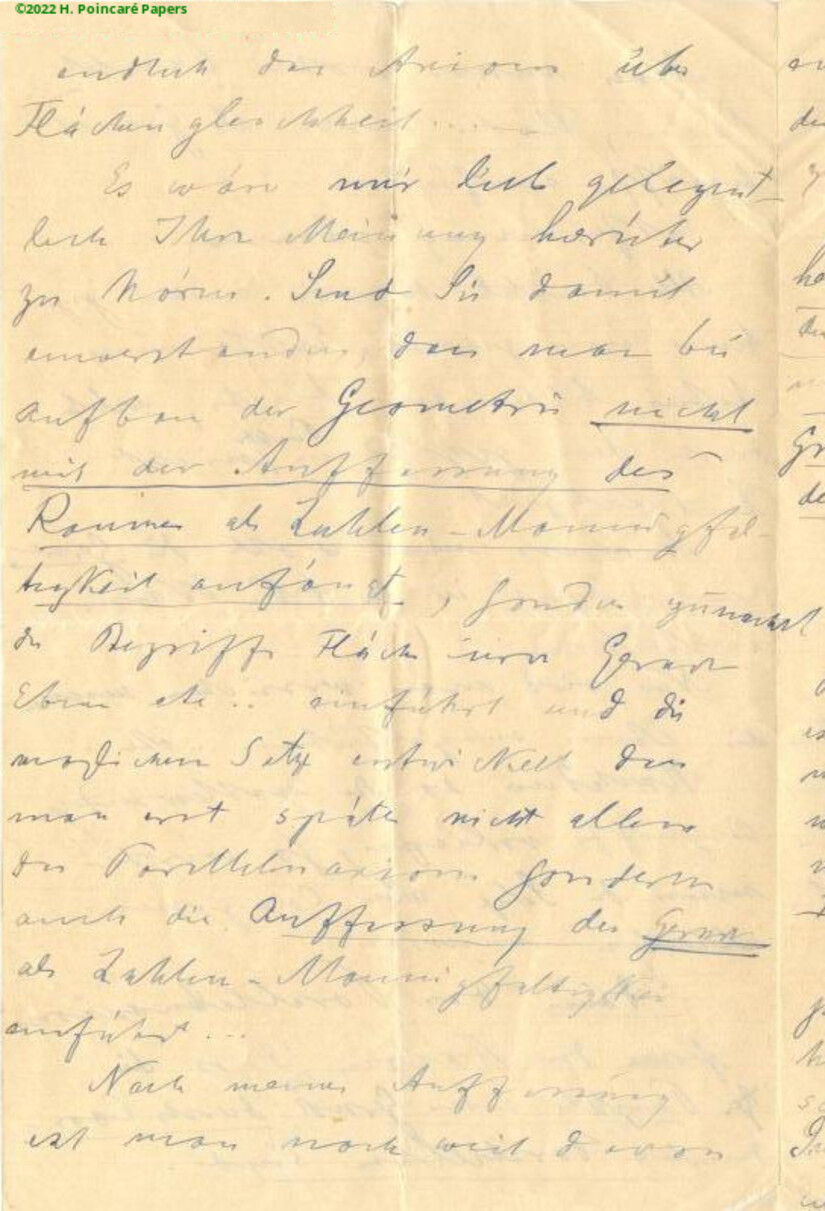 ©2022 H. Poincaré Papers
endlich das Axiom über
Flächengleichheit.....
Es wäre mir lieb gelegent-
lich Ihre Meinung hierüber
zu hören. Sind Sie damit
einverstanden, dass man bei
Aufbau der Geometrie nicht
mit der Auffassung des
Raumes als Zahlen-Mannigfal-
tigkeit anfängt, sondern zunächst
die Begriffe Fläche Gerade
Ebene etc.. einführt und die
möglichen Sätze entwickelt dass
man erst später nicht allein
das Parallelenaxiom sondern
auch die Auffassung der Geraden
als Zahlen-Mannigfaltigkei
einführt...
Nach meiner Auffassung
ist man noch weit davon